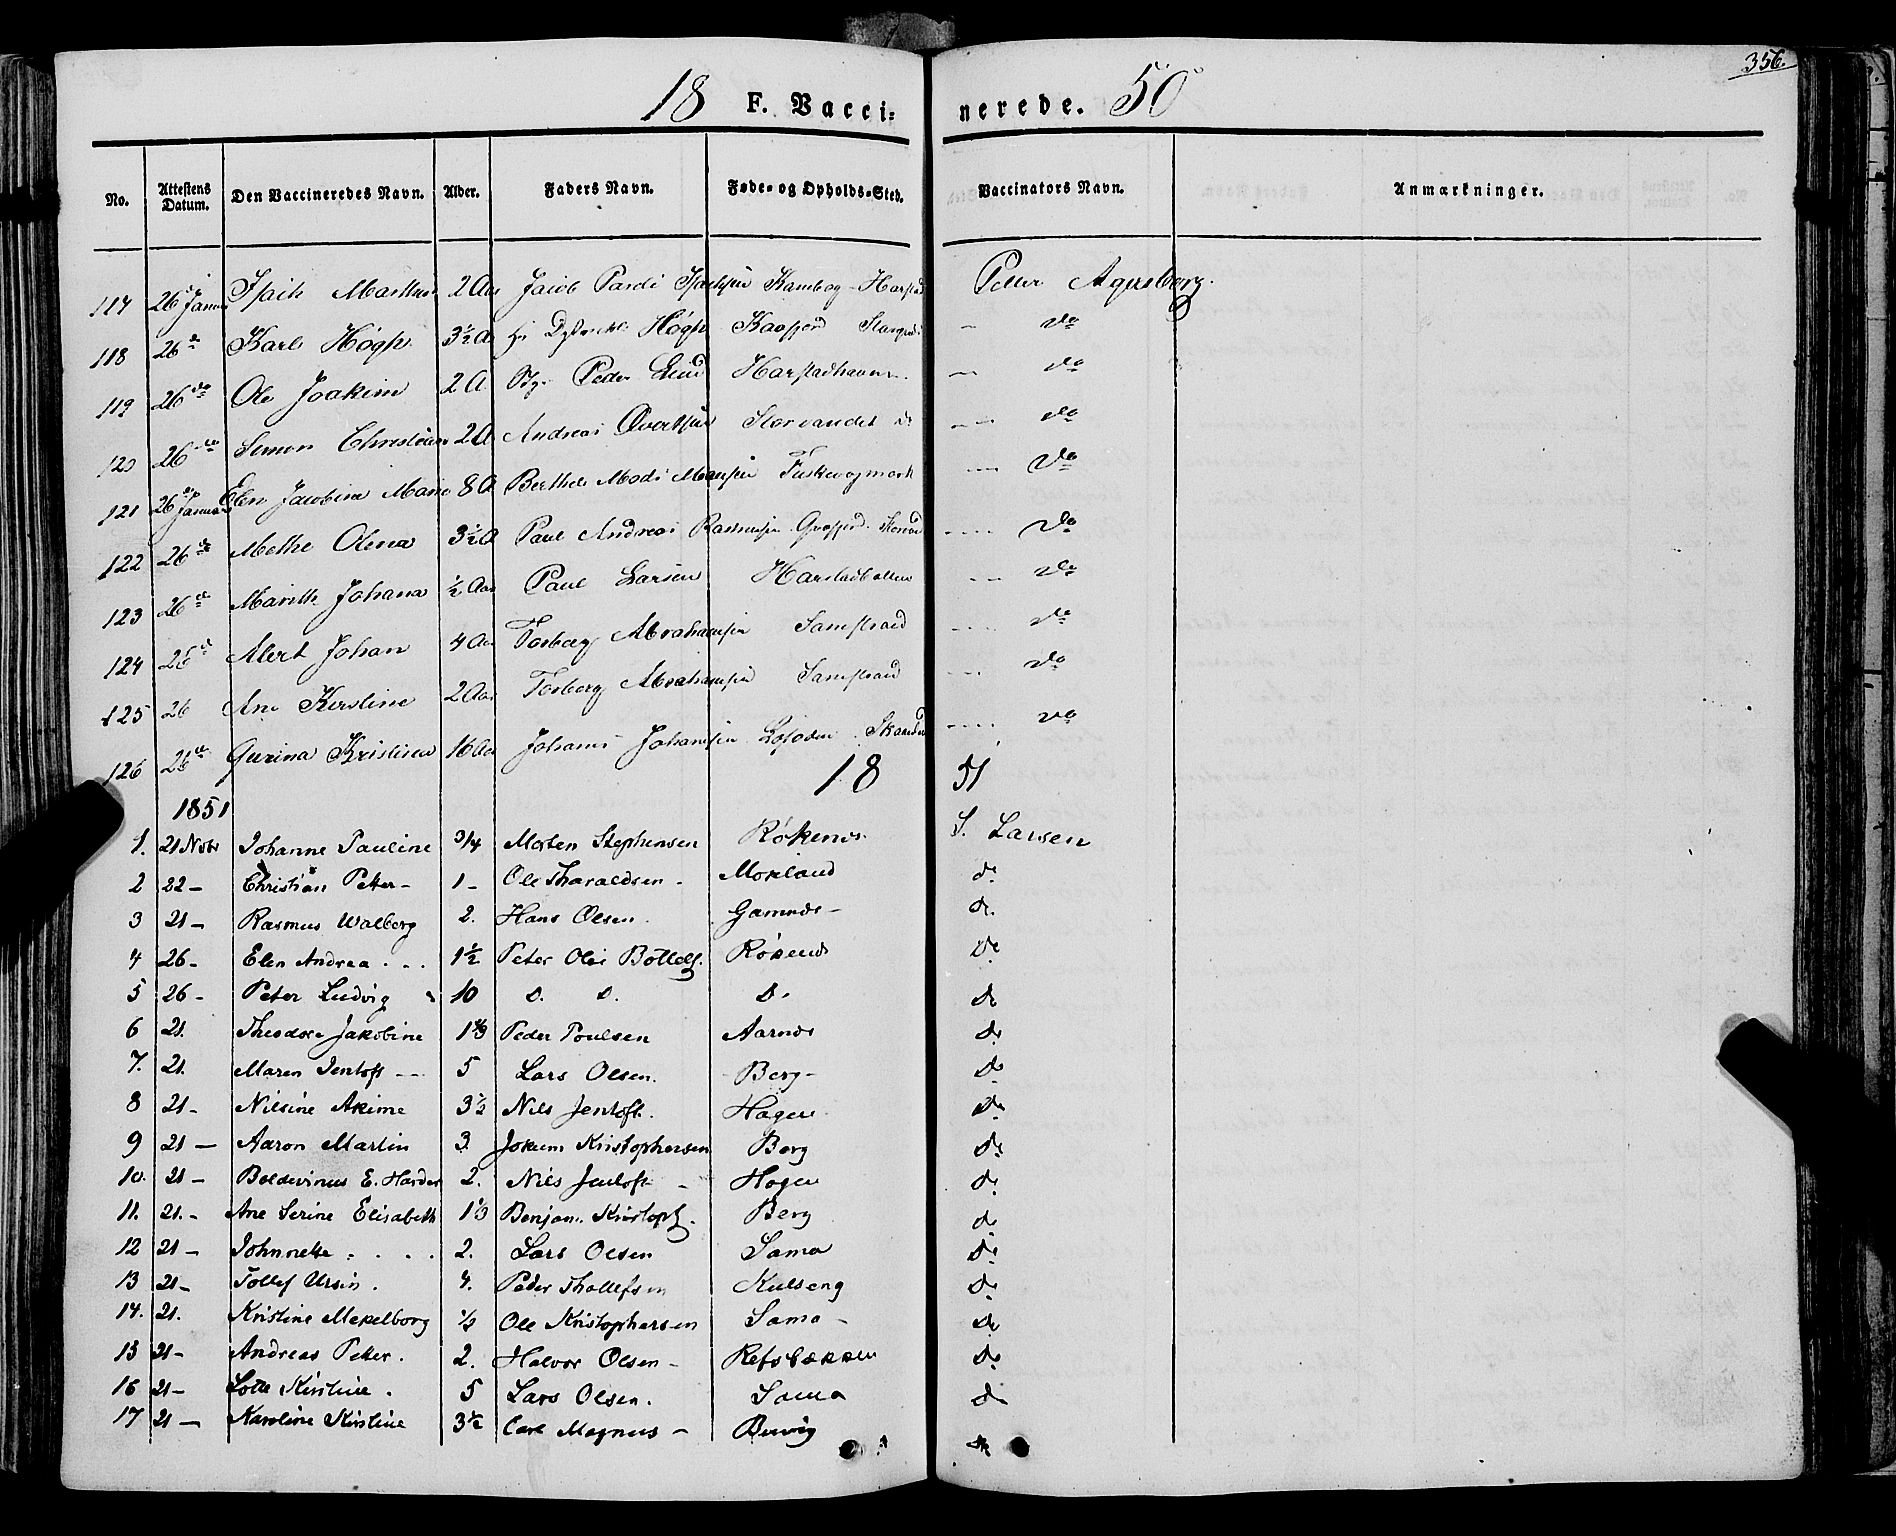 356.
18 F. Vacci= nerede. 50
No. Attestens Datum. Den Vaccineredes Navn. Alder. Faders Navn. Føde= og Opholds=Sted. Vaccinators Navn. Anmærkninger.
117 26 Januar Isach Martinus 2 Aar Jacob Pardi Isachsen Harstad Peter
118 26 do Karl Høgh 3½ A Høgh Kaafjord do
119 26 do Ole Joakim 2 A Peder Lund Harstadhavn do
120 26 do Simon Christian 2 A Andreas Evertsen Storvandet do do
121 26 Januar Elen Jacobine Marie 8 A Berthel Mads do
122 26 do Methe Olena 3½ A Paul Andreas Rasmusen do
123 26 do Marith Johana ½ Aar Paul Larsen Harstadbotten do
124 26 do Alert Johan 4 Aar Torberg Abrahamsen Samstrand do
125 26 Ane Kirstine 2 Aar Torberg Abrahamsen Samstrand do
126 26 do Gurina Kristina 16 Aar Johans Johansen Lofoden do
18 51
1851
1. 21 Nobr Johanne Pauline 3/4 Morten Stephensen Røkenes S. Larsen
2 22 - Christian Petter - 1 - Ole Tharaldsen - Morland do
3 21 - Rasmus Walberg 2. Hans Olsen. Gamnes - do
4 26 - Elen Andrea . . . 1½ Peter Olai Bottolfs. Røkenes do
5 26 - Peter Ludvig 10 D. D. D. do
6 21. Theodore Jakobine Peder Poulsen Aarnes do
7. 21. Maren Jentoft - - 5 Lars Olsen. Berg - do
8 21 - Nilsine Akime 3½ Nils Jentoft. Hagen do
9 21 - Aaron Martin 3 Jokum Kristophersen Berg do
10. 21 - Boldevinus E. Harder 2. Nils Jentoft - Hagen do
11. 21. - Ane Serine Elisabeth 1½ Benjam. Kristoph. Berg do
12 21 - Johnnette . . . . 2. Lars Olsen Sama do
13 21 - Tollef Ursin. 4. Peder Thollefsen Kulseng do
14. 21. Kristine Mekelborg ½ Ole Kristophersen Sama - do
15 21 - Andreas Petter. 2. Halvor Olsen - Refsbækken do
16 21 - Lotte Kirstine. 5 Lars Olsen. Sama do
17 21 - Karoline Kirstine 3½ Carl Magnus - Bervig do